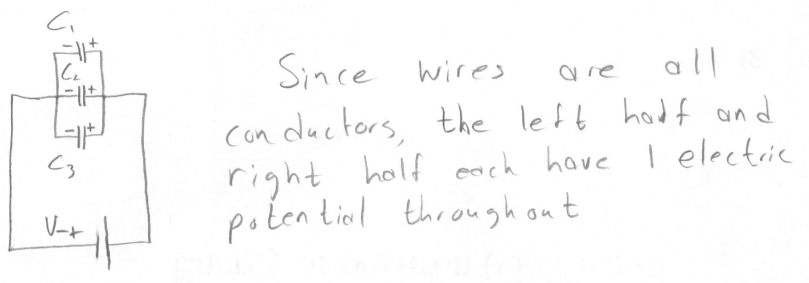 C₁
- +
C₂
- +
- +
C₃
V - +
Since wires are all
conductors, the left half and
right half each have 1 electric
potential throughout